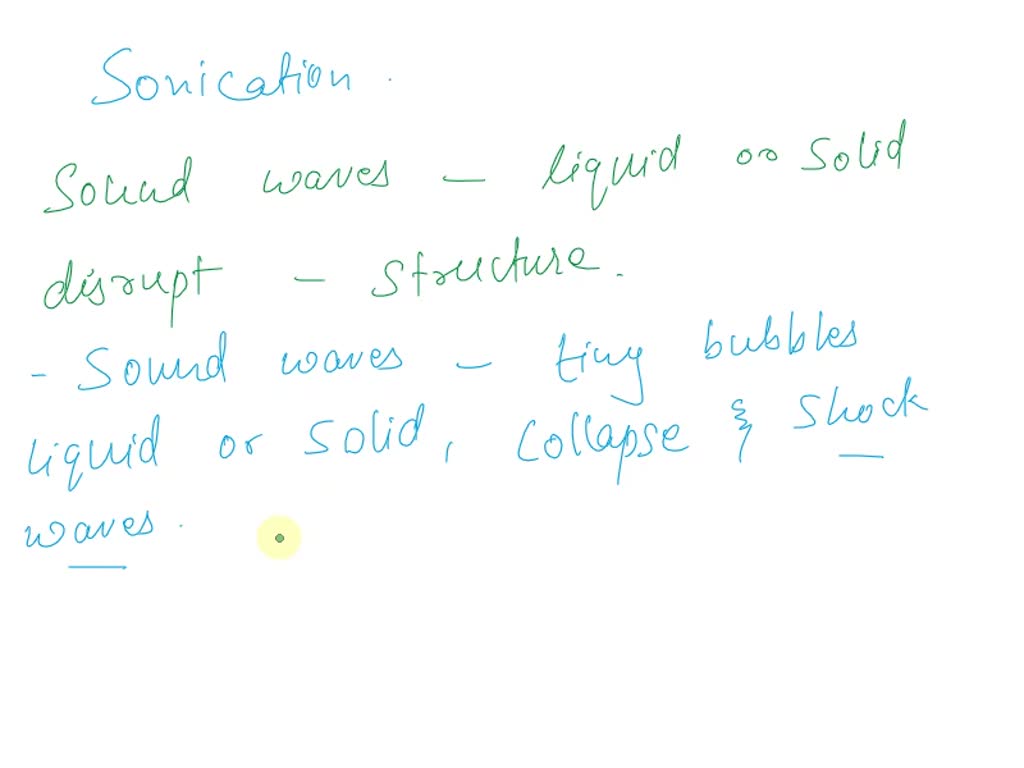 Sonication.
Sound waves - liquid or solid
disrupt - structure.
- Sound waves - tiny bubbles
liquid or solid, collapse & shock
waves.